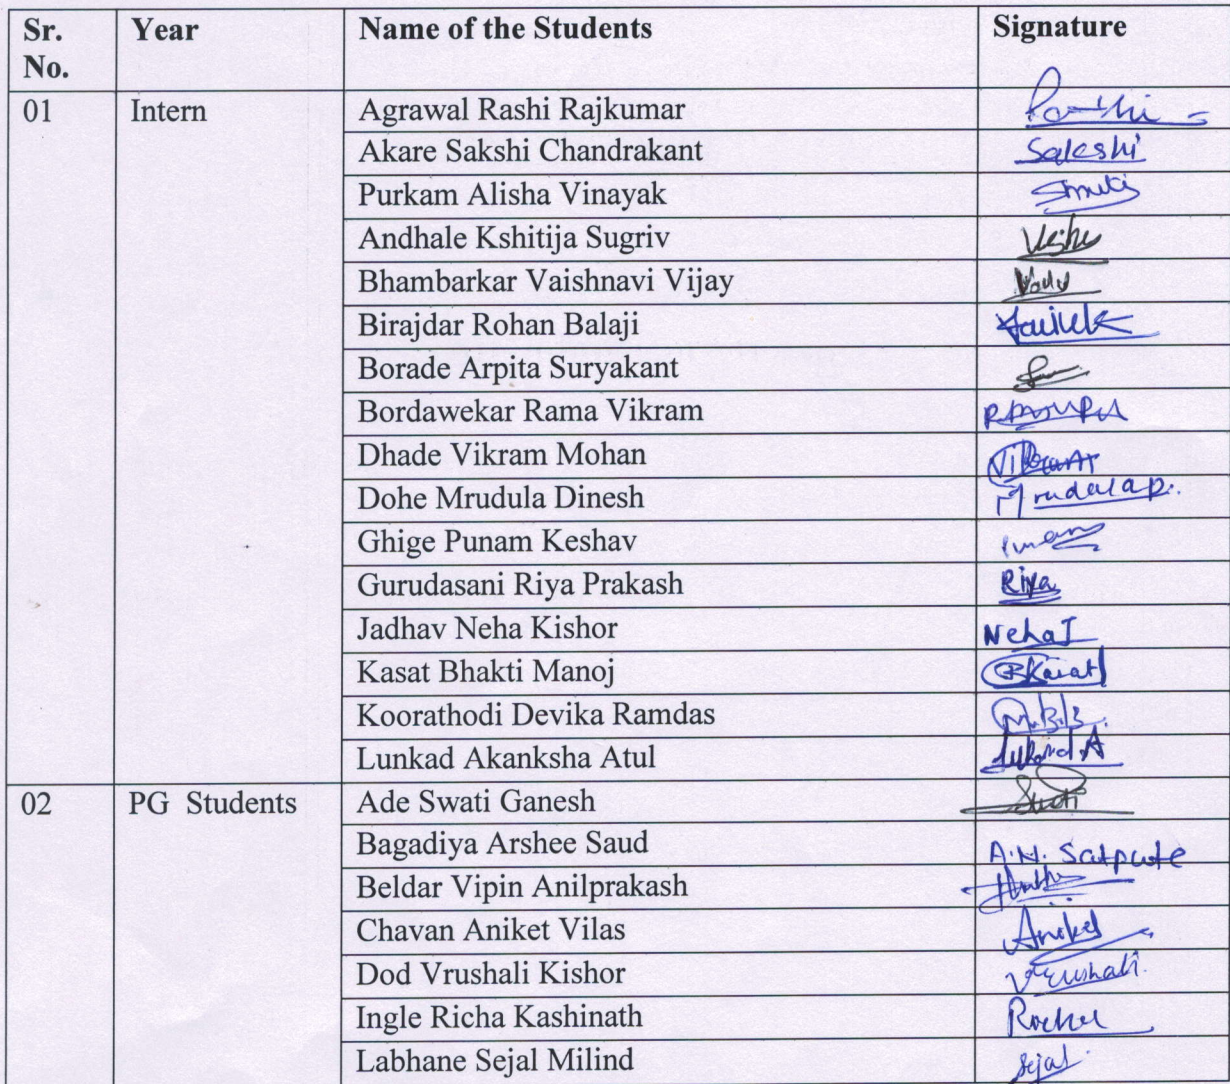 Sr. No. Year Name of the Students Signature
01 Intern Agrawal Rashi Rajkumar
Akare Sakshi Chandrakant Sakshi
Purkam Alisha Vinayak
Andhale Kshitija Sugriv
Bhambarkar Vaishnavi Vijay
Birajdar Rohan Balaji
Borade Arpita Suryakant
Bordawekar Rama Vikram
Dhade Vikram Mohan
Dohe Mrudula Dinesh Mrudula D.
Ghige Punam Keshav
Gurudasani Riya Prakash Riya
Jadhav Neha Kishor Neha J
Kasat Bhakti Manoj BKasat
Koorathodi Devika Ramdas
Lunkad Akanksha Atul
02 PG Students Ade Swati Ganesh
Bagadiya Arshee Saud A.N. Satpute
Beldar Vipin Anilprakash
Chavan Aniket Vilas Aniket
Dod Vrushali Kishor Vrushali
Ingle Richa Kashinath
Labhane Sejal Milind Sejal